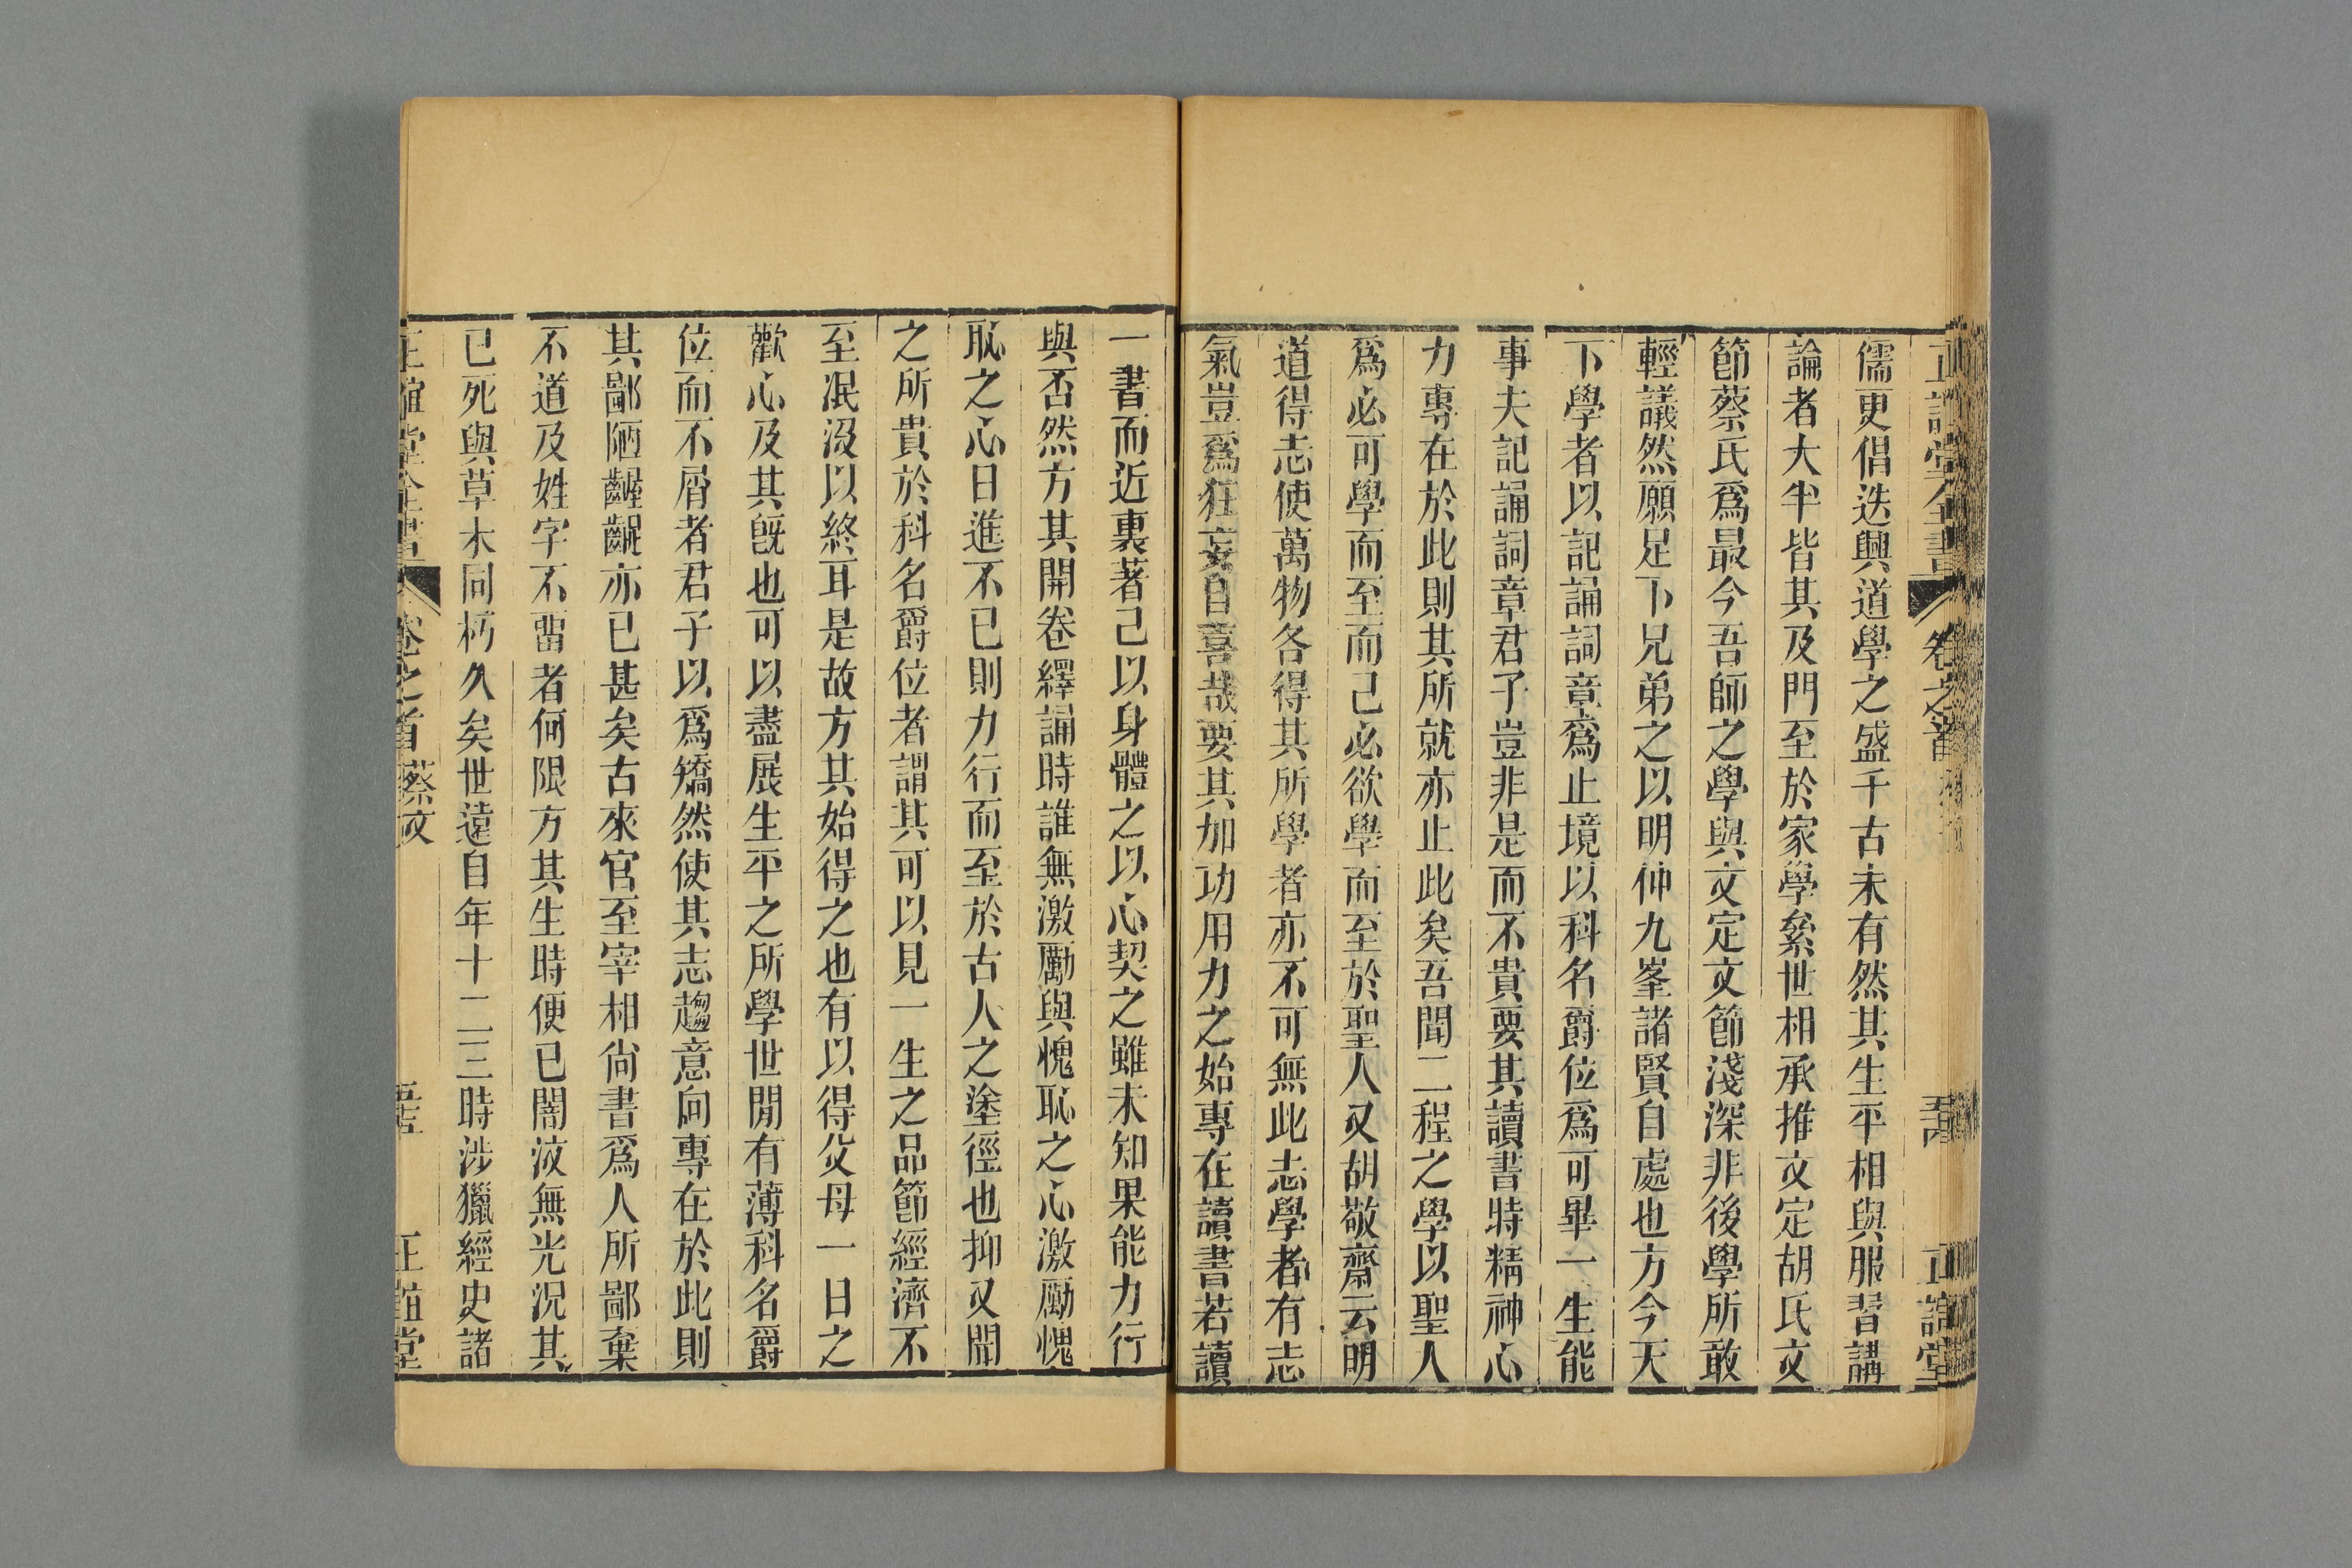 正誼堂全書 卷之首 正誼堂
儒更倡迭興道學之盛千古未有然其生平相與服習講
論者大半皆其及門至於家學絫世相承推文定胡氏文
節蔡氏爲最今吾師之學與文定文節淺深非後學所敢
輕議然願足下兄弟之以明仲九峯諸賢自處也方今天
下學者以記誦詞章爲止境以科名爵位爲可畢一生能
事夫記誦詞章君子豈非是而不貴要其讀書時精神心
力專在於此則其所就亦止此矣吾聞二程之學以聖人
爲必可學而至而己必欲學而至於聖人又胡敬齋云明
道得志使萬物各得其所學者亦不可無此志學者有志
氣豈爲狂妄自喜哉要其加功用力之始專在讀書若讀
一書而近裏著己以身體之以心契之雖未知果能力行
與否然方其開卷繹誦時誰無激勵與愧恥之心激勵愧
恥之心日進不已則力行而至於古人之塗徑也抑又聞
之所貴於科名爵位者謂其可以見一生之品節經濟不
至泯沒以終耳是故方其始得之也有以得父母一日之
歡心及其旣也可以盡展生平之所學世閒有薄科名爵
位而不屑者君子以爲矯然使其志趨意向專在於此則
其鄙陋齷齪亦已甚矣古來官至宰相尙書爲人所鄙棄
不道及姓字不畱者何限方其生時便已闇汶無光況其
已死與草木同朽久矣世遠自年十二三時涉獵經史諸
正誼堂全書 卷之首 蔡文 正誼堂